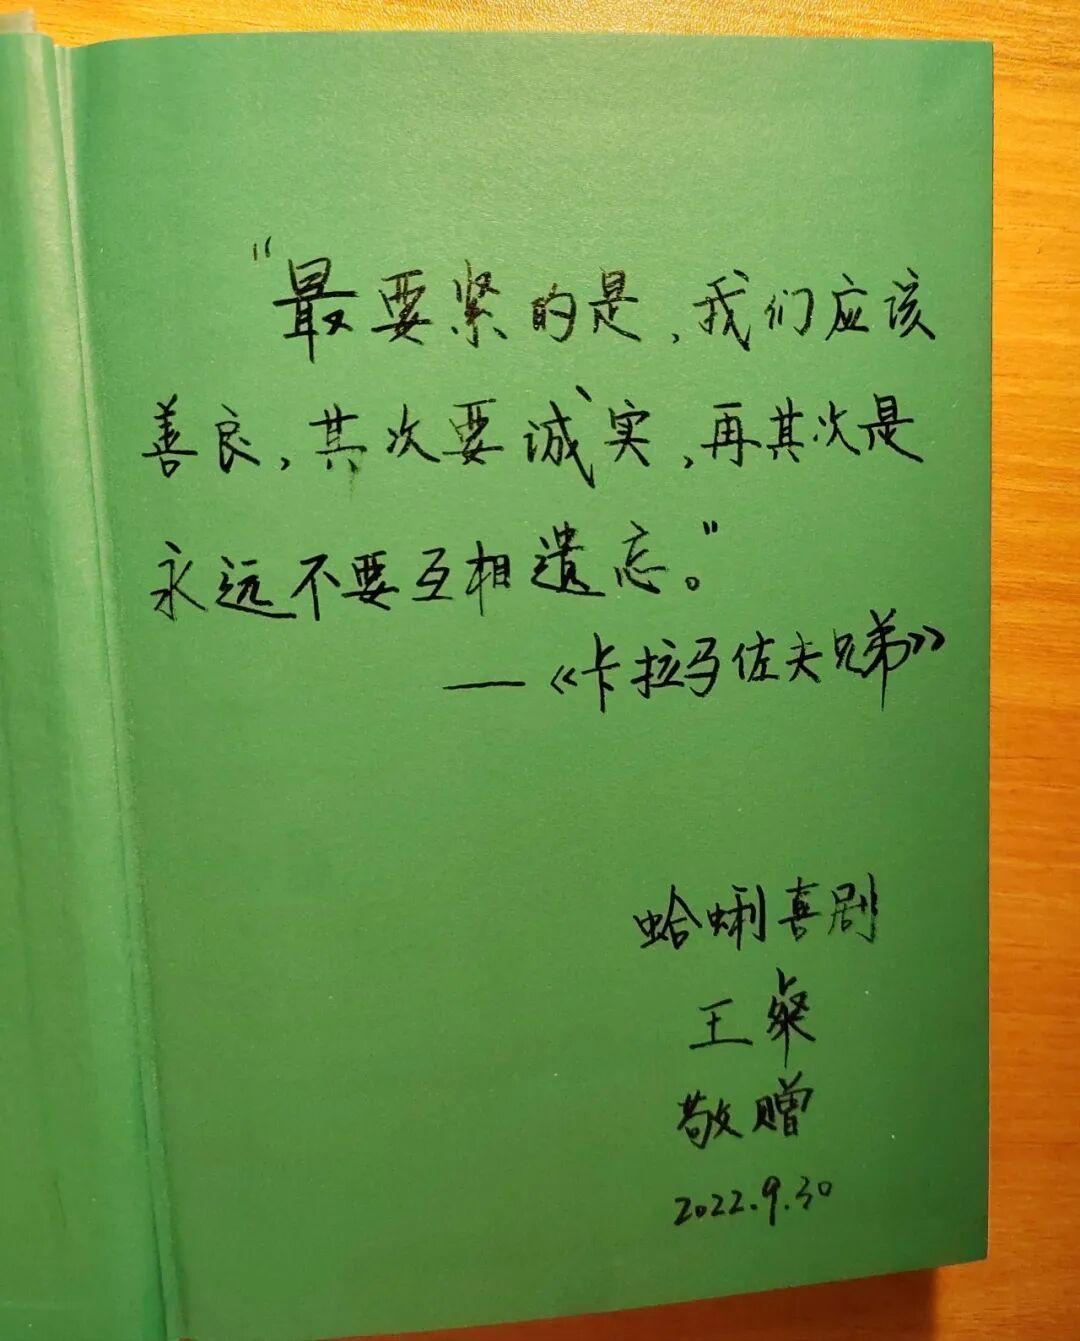 “最要紧的是，我们应该
善良，其次要诚实，再其次是
永远不要互相遗忘。”
—《卡拉马佐夫兄弟》
蛤蜊喜剧
王粲
敬赠
2022.9.30